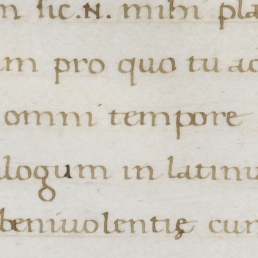 m sic. N. mihi pla
um pro quo tu ac
omni tempore
logum in latinu
beniuolentię cum